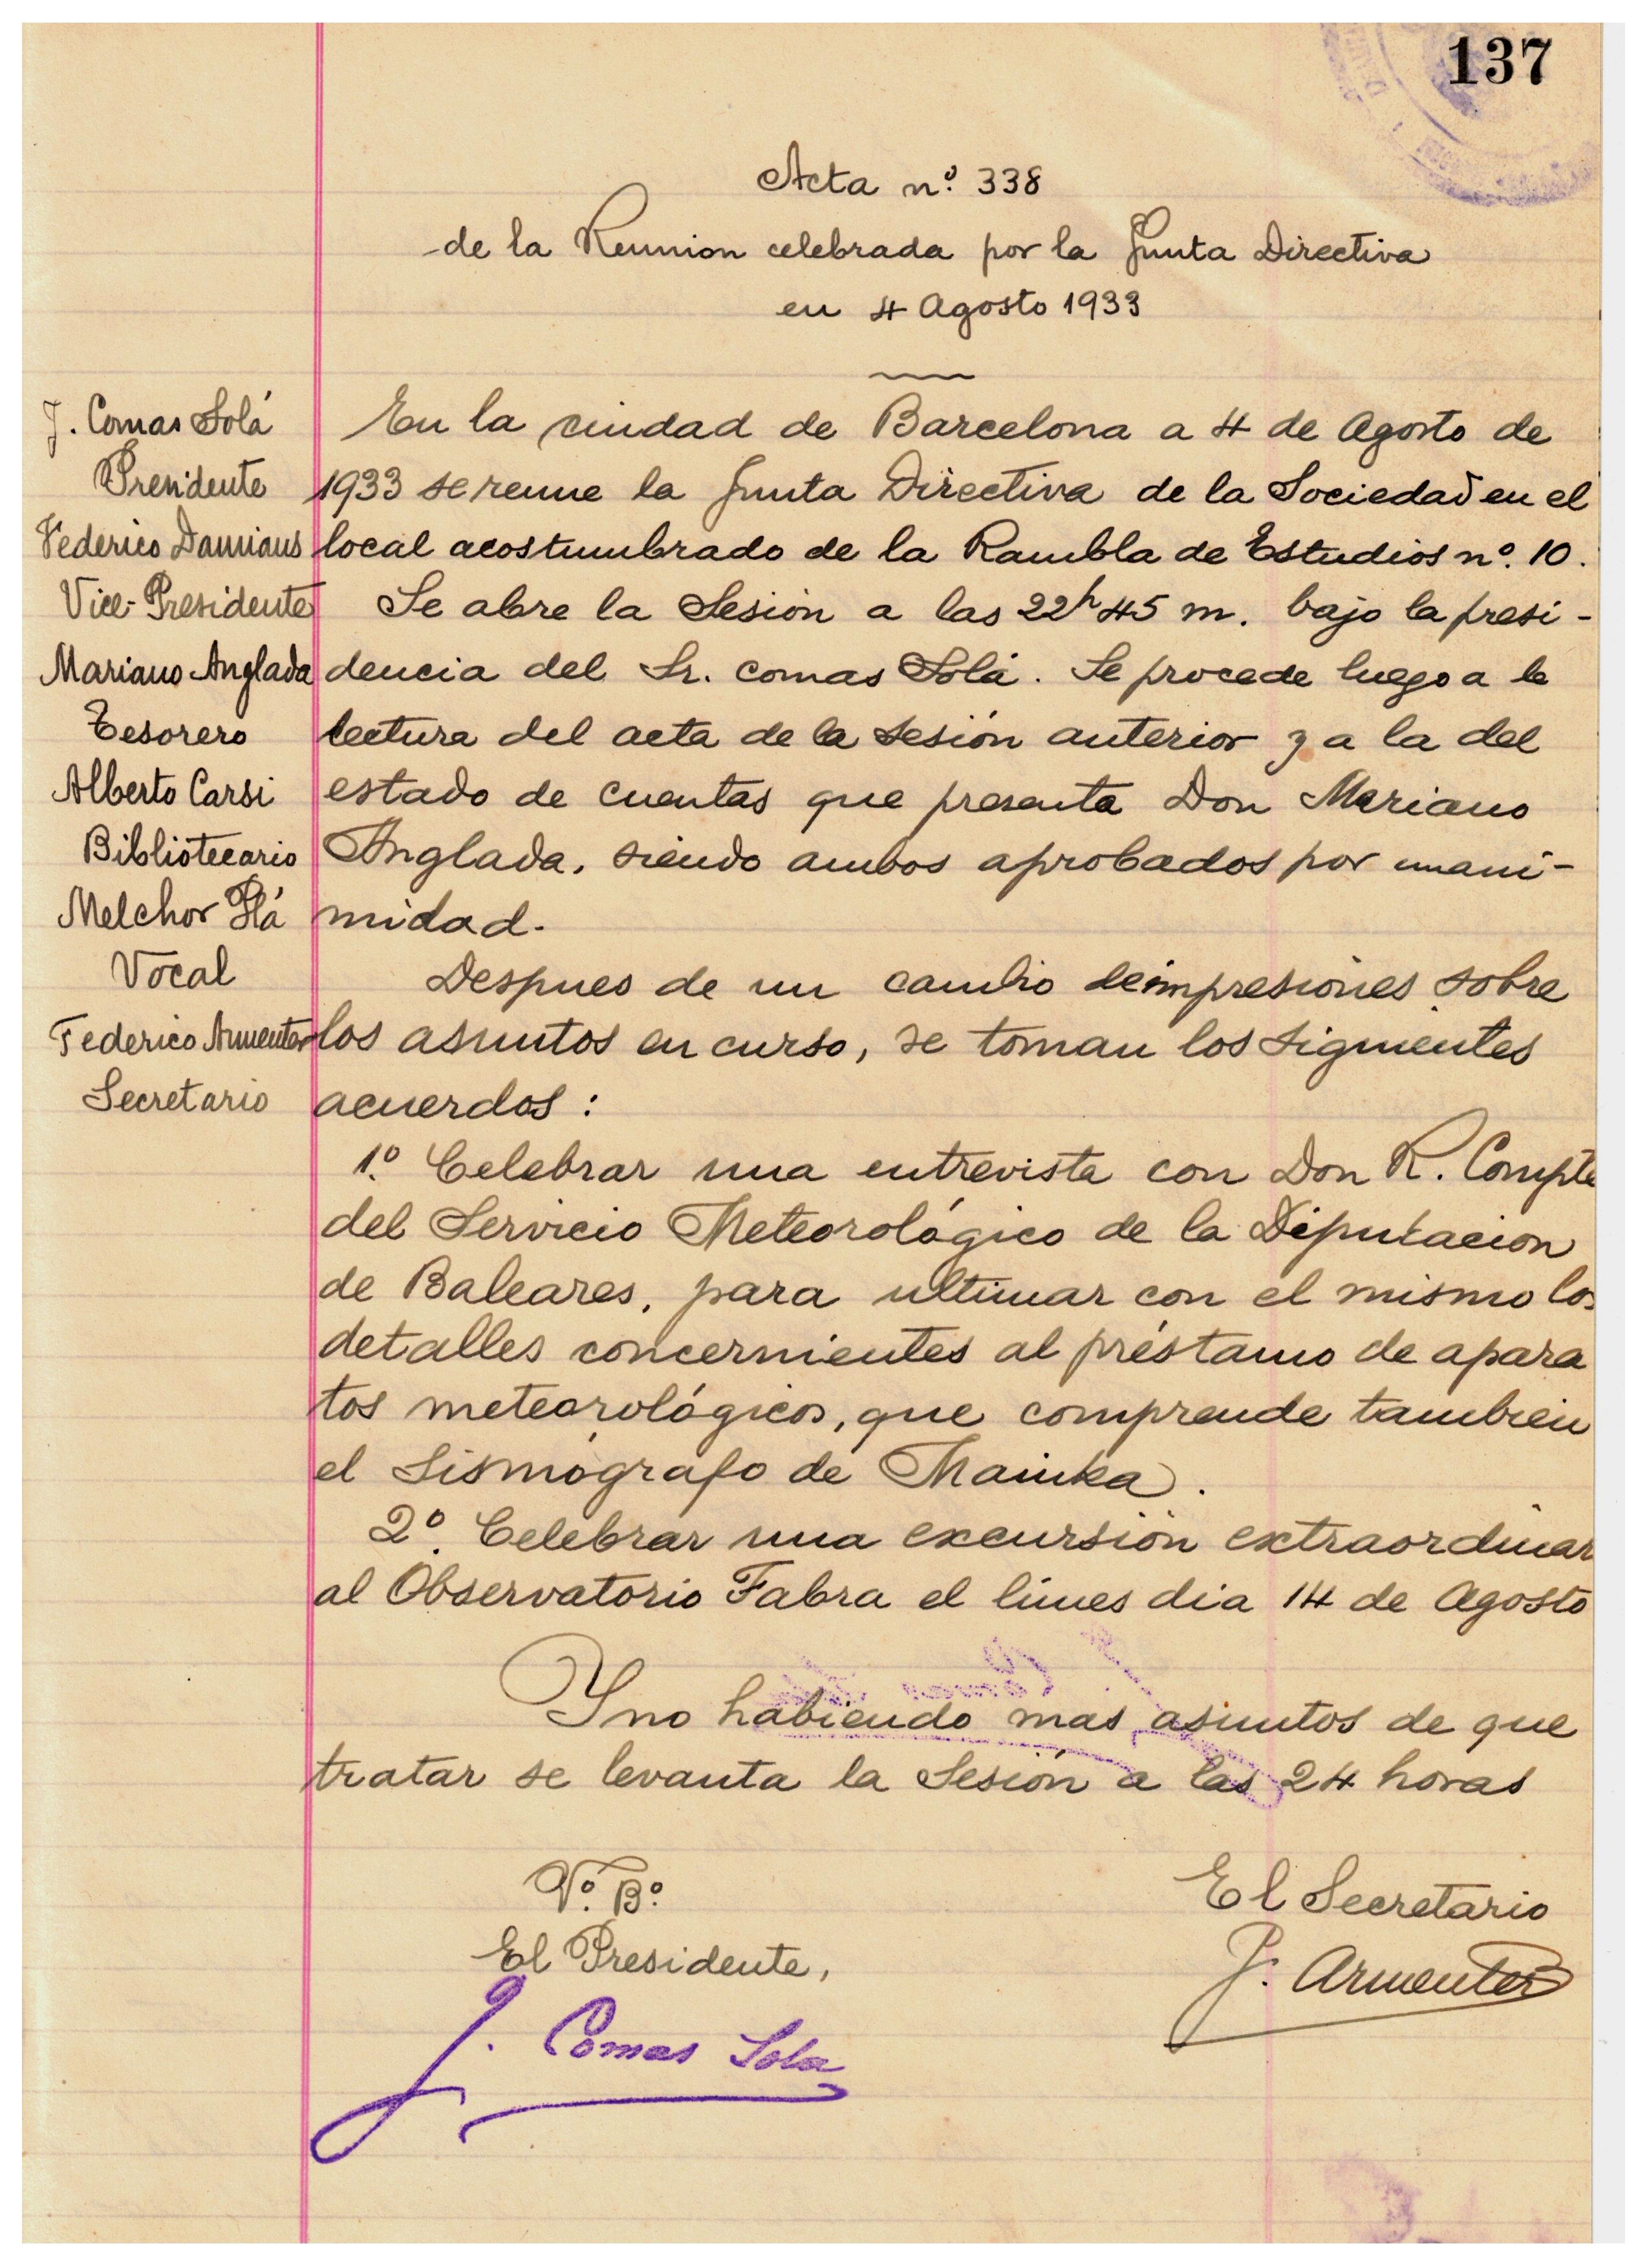 137
Acta nº. 338
de la Reunion celebrada por la Junta Directiva
en 4 Agosto 1933
J. Comas Solá
Presidente
Federico Damians
Vice-Presidente
Mariano Anglada
Tesorero
Alberto Carsi
Bibliotecario
Melchor Plá
Vocal
Federico Armenter
Secretario
En la ciudad de Barcelona a 4 de Agosto de
1933 se reune la Junta Directiva de la Sociedad en el
local acostumbrado de la Rambla de Estudios nº. 10.
Se abre la Sesión a las 22h 45 m. bajo la presi-
dencia del Sr. Comas Solá. Se procede luego a la
lectura del acta de la sesión anterior y a la del
estado de cuentas que presenta Don Mariano
Anglada, siendo ambos aprobados por unani-
midad.
Despues de un cambio de impresiones sobre
los asuntos en curso, se toman los siguientes
acuerdos:
1º. Celebrar una entrevista con Don R. Compte
del Servicio Meteorológico de la Diputacion
de Baleares, para ultimar con el mismo los
detalles concernientes al préstamo de apara
tos meteorológicos, que comprende tambien
el Sismógrafo de Mainka.
2º. Celebrar una excursión extraordinar
al Observatorio Fabra el lúnes dia 14 de Agosto
Y no habiendo mas asuntos de que
tratar se levanta la Sesión a las 24 horas
Vº. Bº.
El Presidente,
J. Comas Solá
El Secretario
F. Armenter